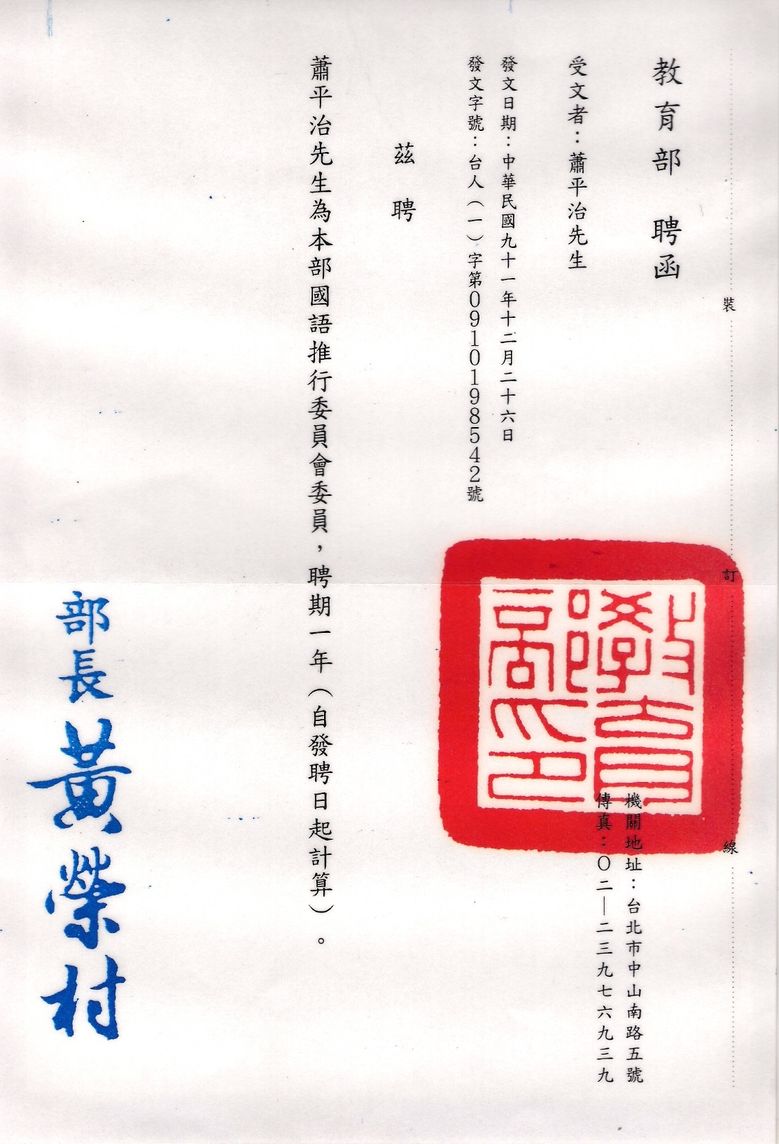 裝
訂
線
教育部 聘函
機關地址：台北市中山南路五號
傳真：〇二—二三九七六九三九
受文者：蕭平治先生
發文日期：中華民國九十一年十二月二十六日
發文字號：台人（一）字第0910198542號
茲聘
蕭平治先生為本部國語推行委員會委員，聘期一年（自發聘日起計算）。
部長 黃榮村
教育部印